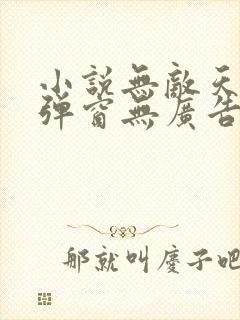 小説無敵天
彈窗無廣告
那就叫慶子吧